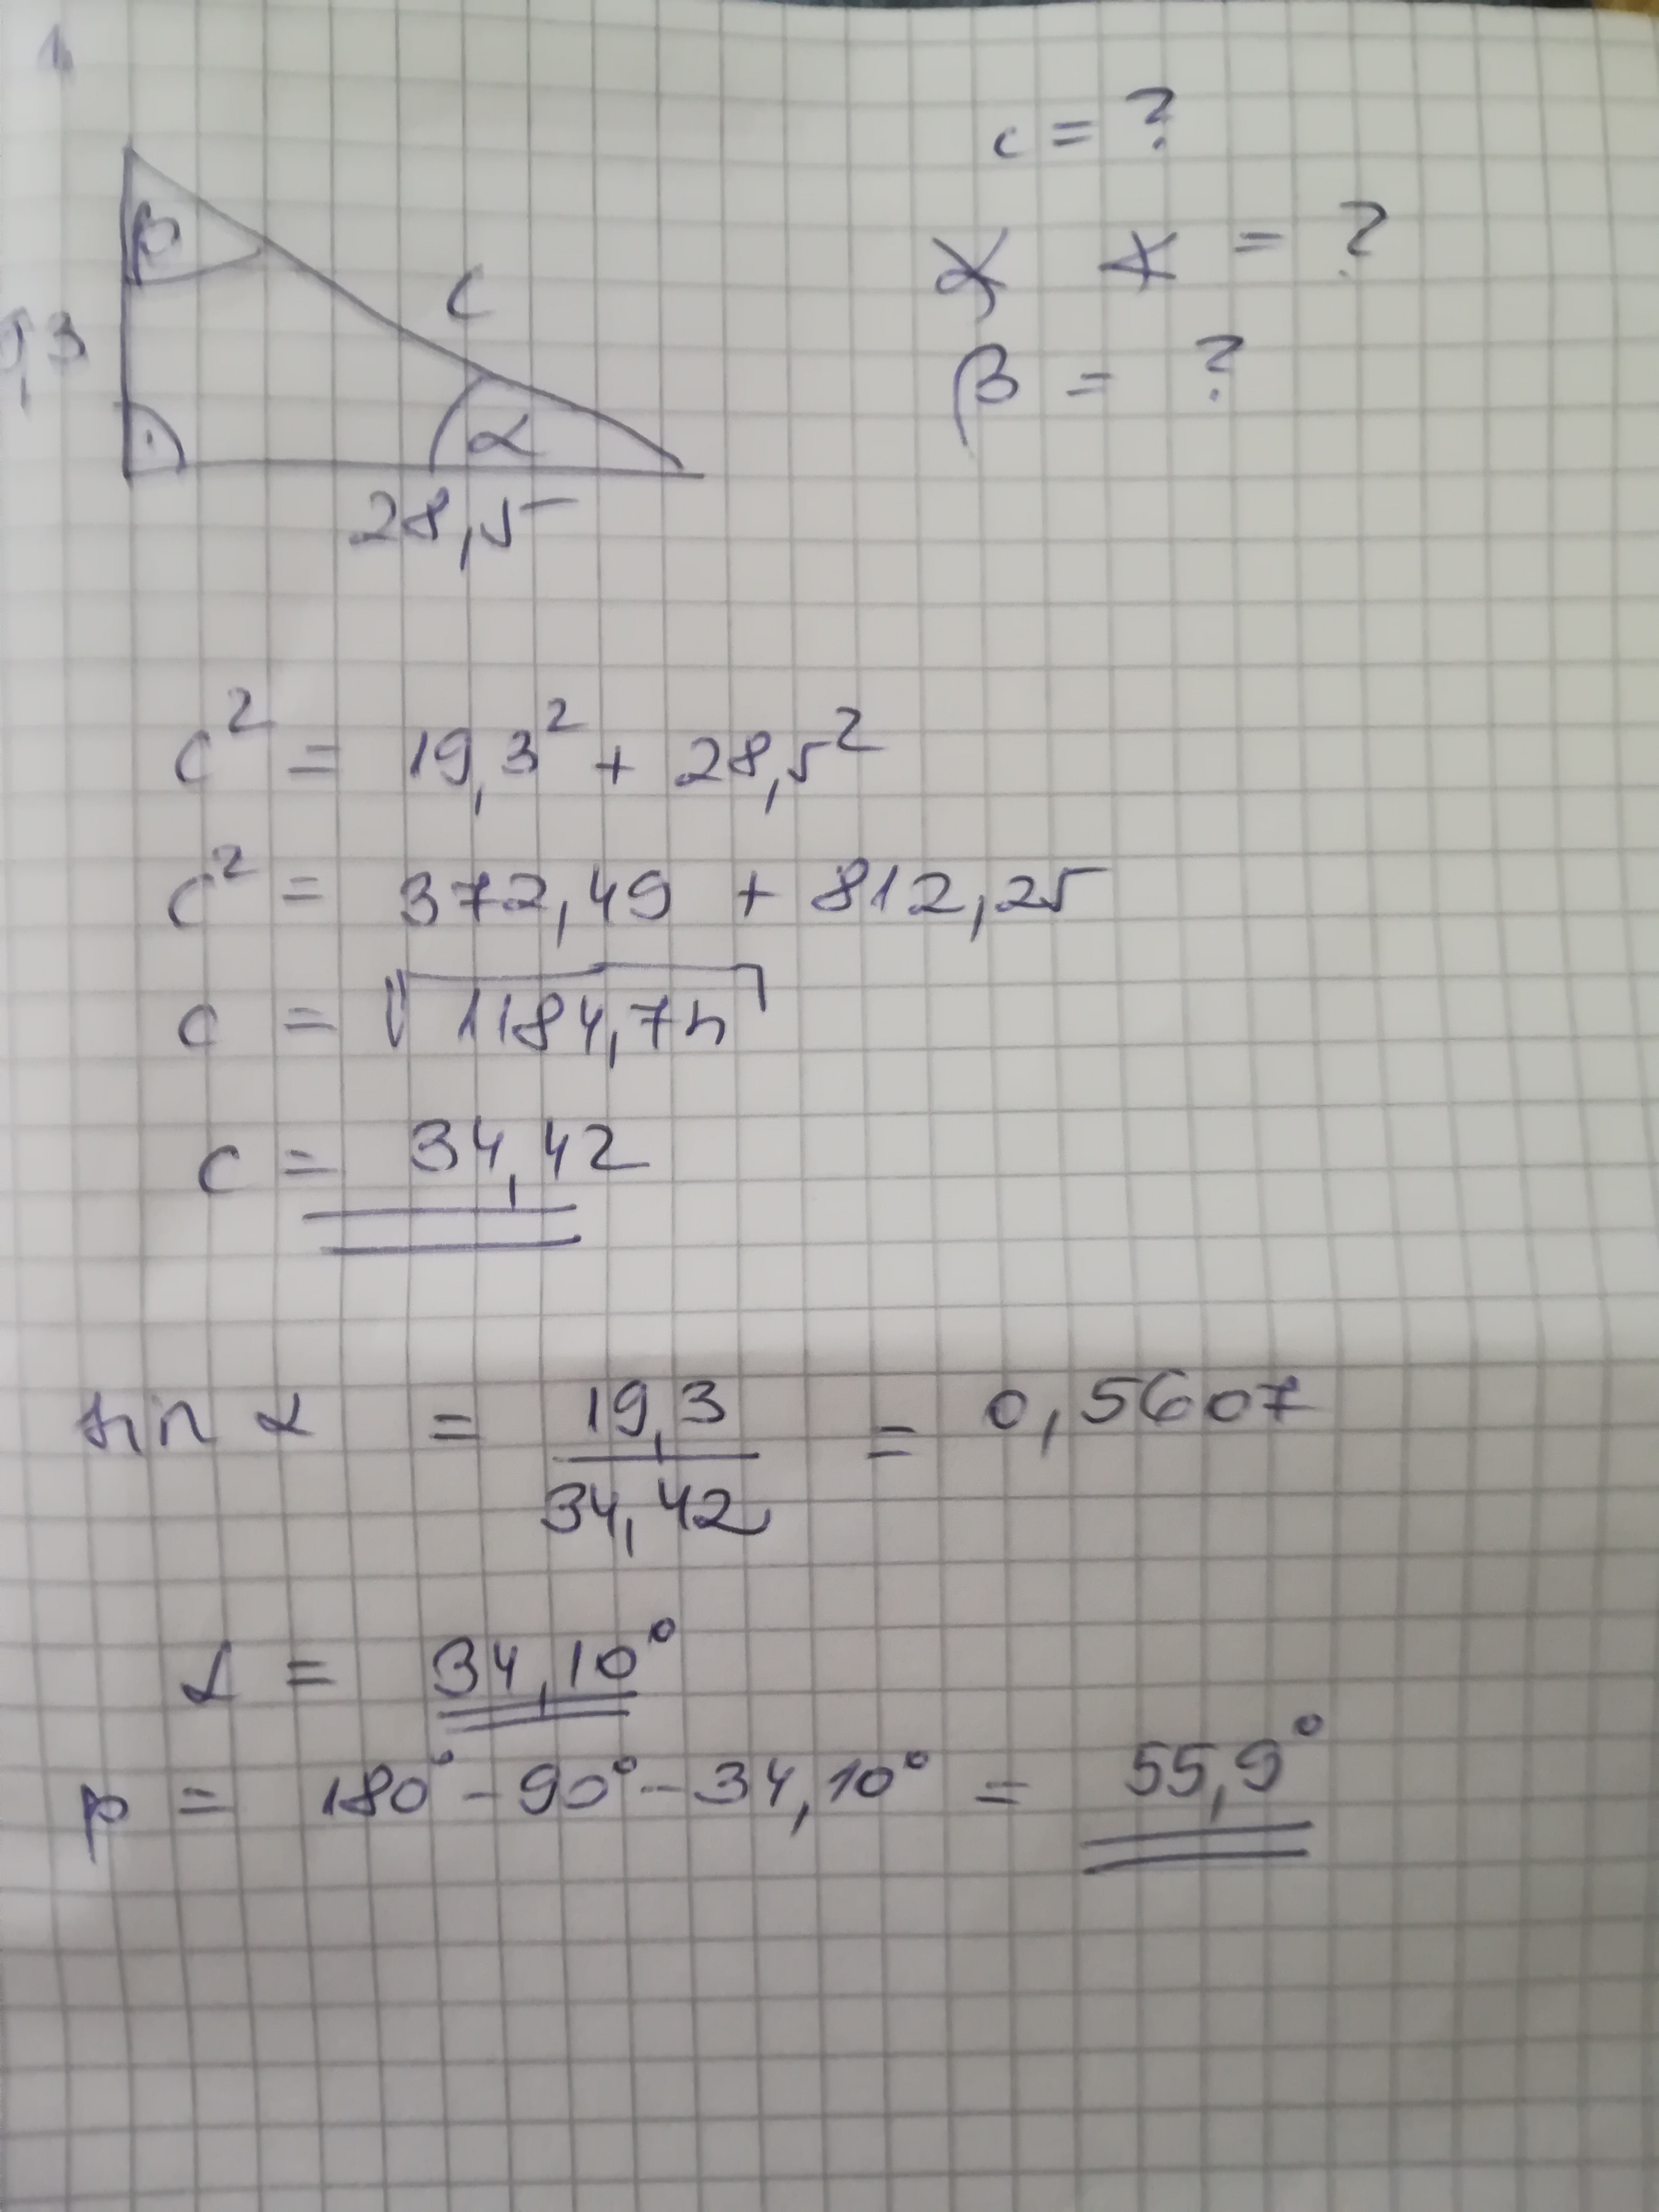 1,
c = ?
α ∡ = ?
β = ?
β
c
9,3
α
28,5
c² = 19,3² + 28,5²
c² = 372,49 + 812,25
c = √1184,74
c = 34,42
sin α = 19,3 / 34,42 = 0,5607
α = 34,10°
β = 180° - 90° - 34,10° = 55,9°